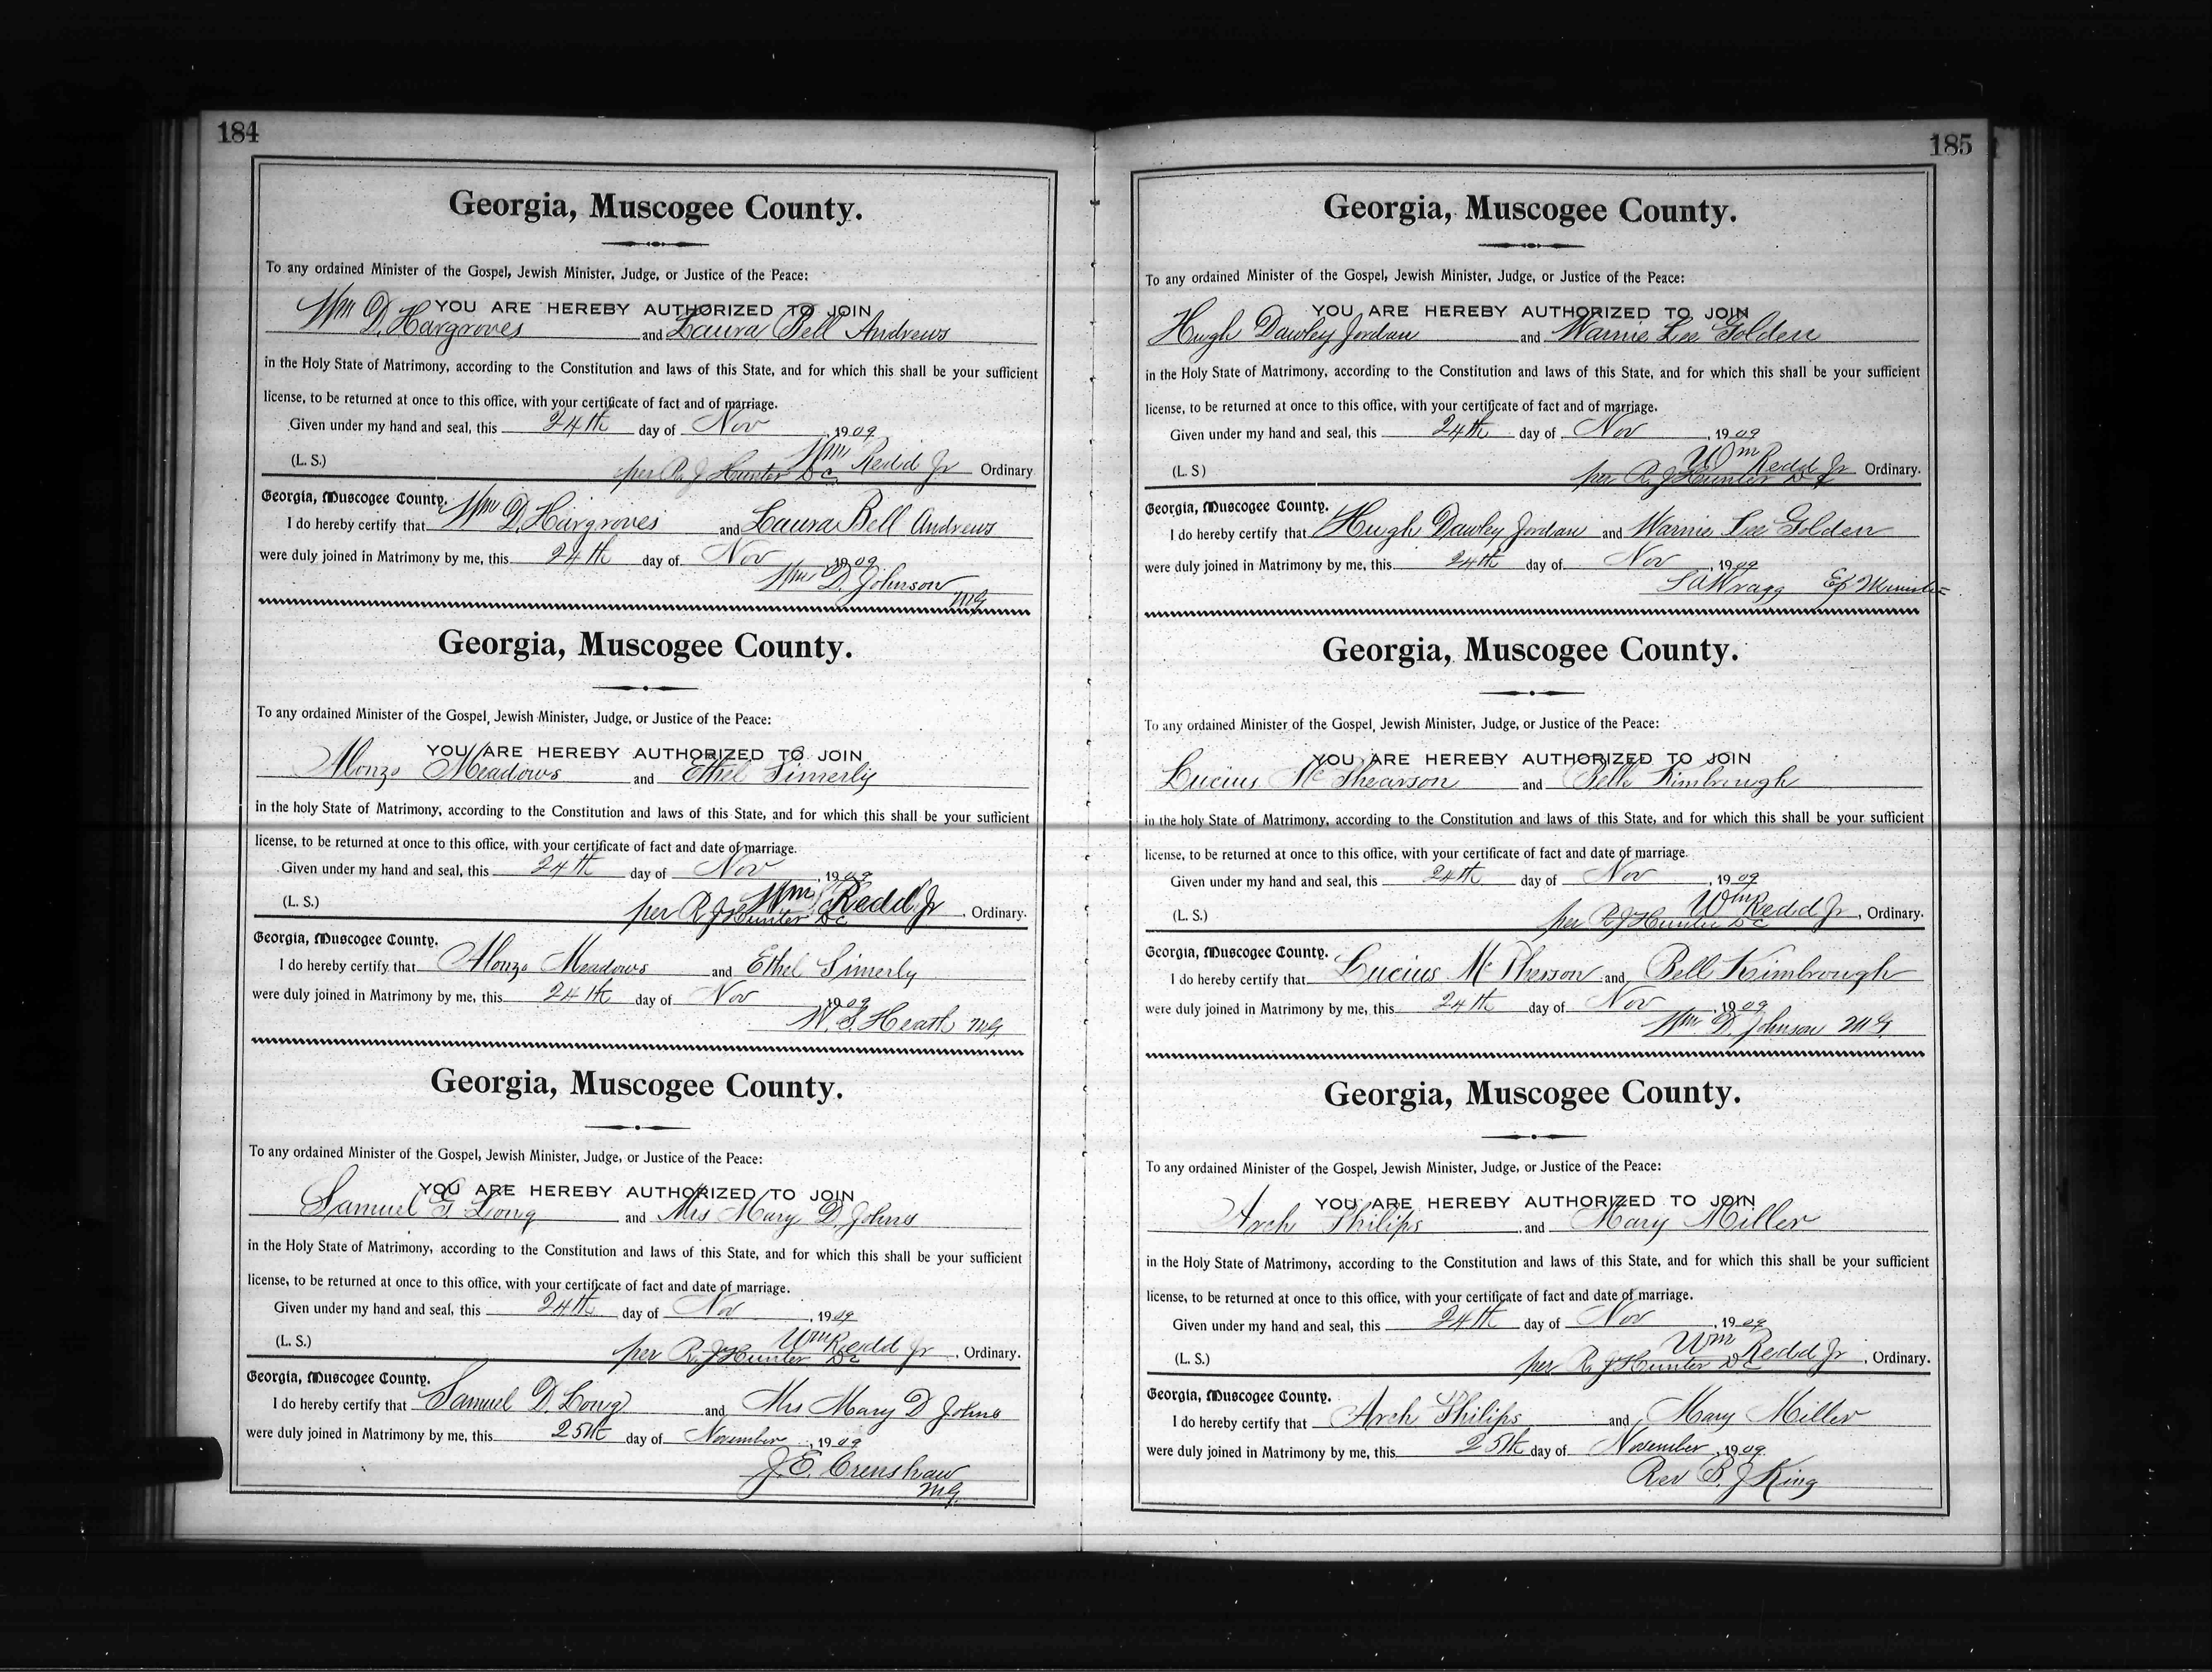 184
Georgia, Muscogee County.
To any ordained Minister of the Gospel, Jewish Minister, Judge, or Justice of the Peace:
YOU ARE HEREBY AUTHORIZED TO JOIN
Wm D. Hargroves and Laura Bell Andrews
in the Holy State of Matrimony, according to the Constitution and laws of this State, and for which this shall be your sufficient
license, to be returned at once to this office, with your certificate of fact and of marriage.
Given under my hand and seal, this 24th day of Nov , 1909
Wm Redd Jr
(L. S.) per R. J Hunter DC Ordinary
Georgia, Muscogee County.
I do hereby certify that Wm D. Hargroves and Laura Bell Andrews
were duly joined in Matrimony by me, this 24th day of Nov , 1909
Wm D. Johnson
MG
Georgia, Muscogee County.
To any ordained Minister of the Gospel, Jewish Minister, Judge, or Justice of the Peace:
YOU ARE HEREBY AUTHORIZED TO JOIN
Alonzo Meadows and Ethel Simerly
in the holy State of Matrimony, according to the Constitution and laws of this State, and for which this shall be your sufficient
license, to be returned at once to this office, with your certificate of fact and date of marriage.
Given under my hand and seal, this 24th day of Nov , 1909
Wm Redd Jr
(L. S.) per R J Hunter DC , Ordinary.
Georgia, Muscogee County.
I do hereby certify that Alonzo Meadows and Ethel Simerly
were duly joined in Matrimony by me, this 24th day of Nov , 1909
W. S. Heath MG
Georgia, Muscogee County.
To any ordained Minister of the Gospel, Jewish Minister, Judge, or Justice of the Peace:
YOU ARE HEREBY AUTHORIZED TO JOIN
Samuel G. Long and Mrs Mary D. Johns
in the Holy State of Matrimony, according to the Constitution and laws of this State, and for which this shall be your sufficient
license, to be returned at once to this office, with your certificate of fact and date of marriage.
Given under my hand and seal, this 24th day of Nov , 1909
Wm Redd Jr
(L. S.) per R. J Hunter DC , Ordinary.
Georgia, Muscogee County.
I do hereby certify that Samuel D. Long and Mrs Mary D Johns
were duly joined in Matrimony by me, this 25th day of November , 1909
J. E. Crenshaw
MG.
185
Georgia, Muscogee County.
To any ordained Minister of the Gospel, Jewish Minister, Judge, or Justice of the Peace:
YOU ARE HEREBY AUTHORIZED TO JOIN
Hugh Dawley Jordan and Warnie Lee Golden
in the Holy State of Matrimony, according to the Constitution and laws of this State, and for which this shall be your sufficient
license, to be returned at once to this office, with your certificate of fact and of marriage.
Given under my hand and seal, this 24th day of Nov , 1909
Wm Redd Jr
(L. S) per R. J Hunter DC Ordinary.
Georgia, Muscogee County.
I do hereby certify that Hugh Dawley Jordan and Warnie Lee Golden
were duly joined in Matrimony by me, this 24th day of Nov , 1909
S A Wragg Ep Minister
Georgia, Muscogee County.
To any ordained Minister of the Gospel, Jewish Minister, Judge, or Justice of the Peace:
YOU ARE HEREBY AUTHORIZED TO JOIN
Lucius McPhearson and Belle Kimbrough
in the holy State of Matrimony, according to the Constitution and laws of this State, and for which this shall be your sufficient
license, to be returned at once to this office, with your certificate of fact and date of marriage.
Given under my hand and seal, this 24th day of Nov , 1909
Wm Redd Jr
(L. S.) per R J Hunter DC , Ordinary.
Georgia, Muscogee County.
I do hereby certify that Lucius McPherson and Bell Kimbrough
were duly joined in Matrimony by me, this 24th day of Nov , 1909
Wm D. Johnson MG
Georgia, Muscogee County.
To any ordained Minister of the Gospel, Jewish Minister, Judge, or Justice of the Peace:
YOU ARE HEREBY AUTHORIZED TO JOIN
Arch Philips and Mary Miller
in the Holy State of Matrimony, according to the Constitution and laws of this State, and for which this shall be your sufficient
license, to be returned at once to this office, with your certificate of fact and date of marriage.
Given under my hand and seal, this 24th day of Nov , 1909
Wm Redd Jr
(L. S.) per R. J Hunter DC , Ordinary.
Georgia, Muscogee County.
I do hereby certify that Arch Philips and Mary Miller
were duly joined in Matrimony by me, this 25th day of November , 1909.
Rev B. J King